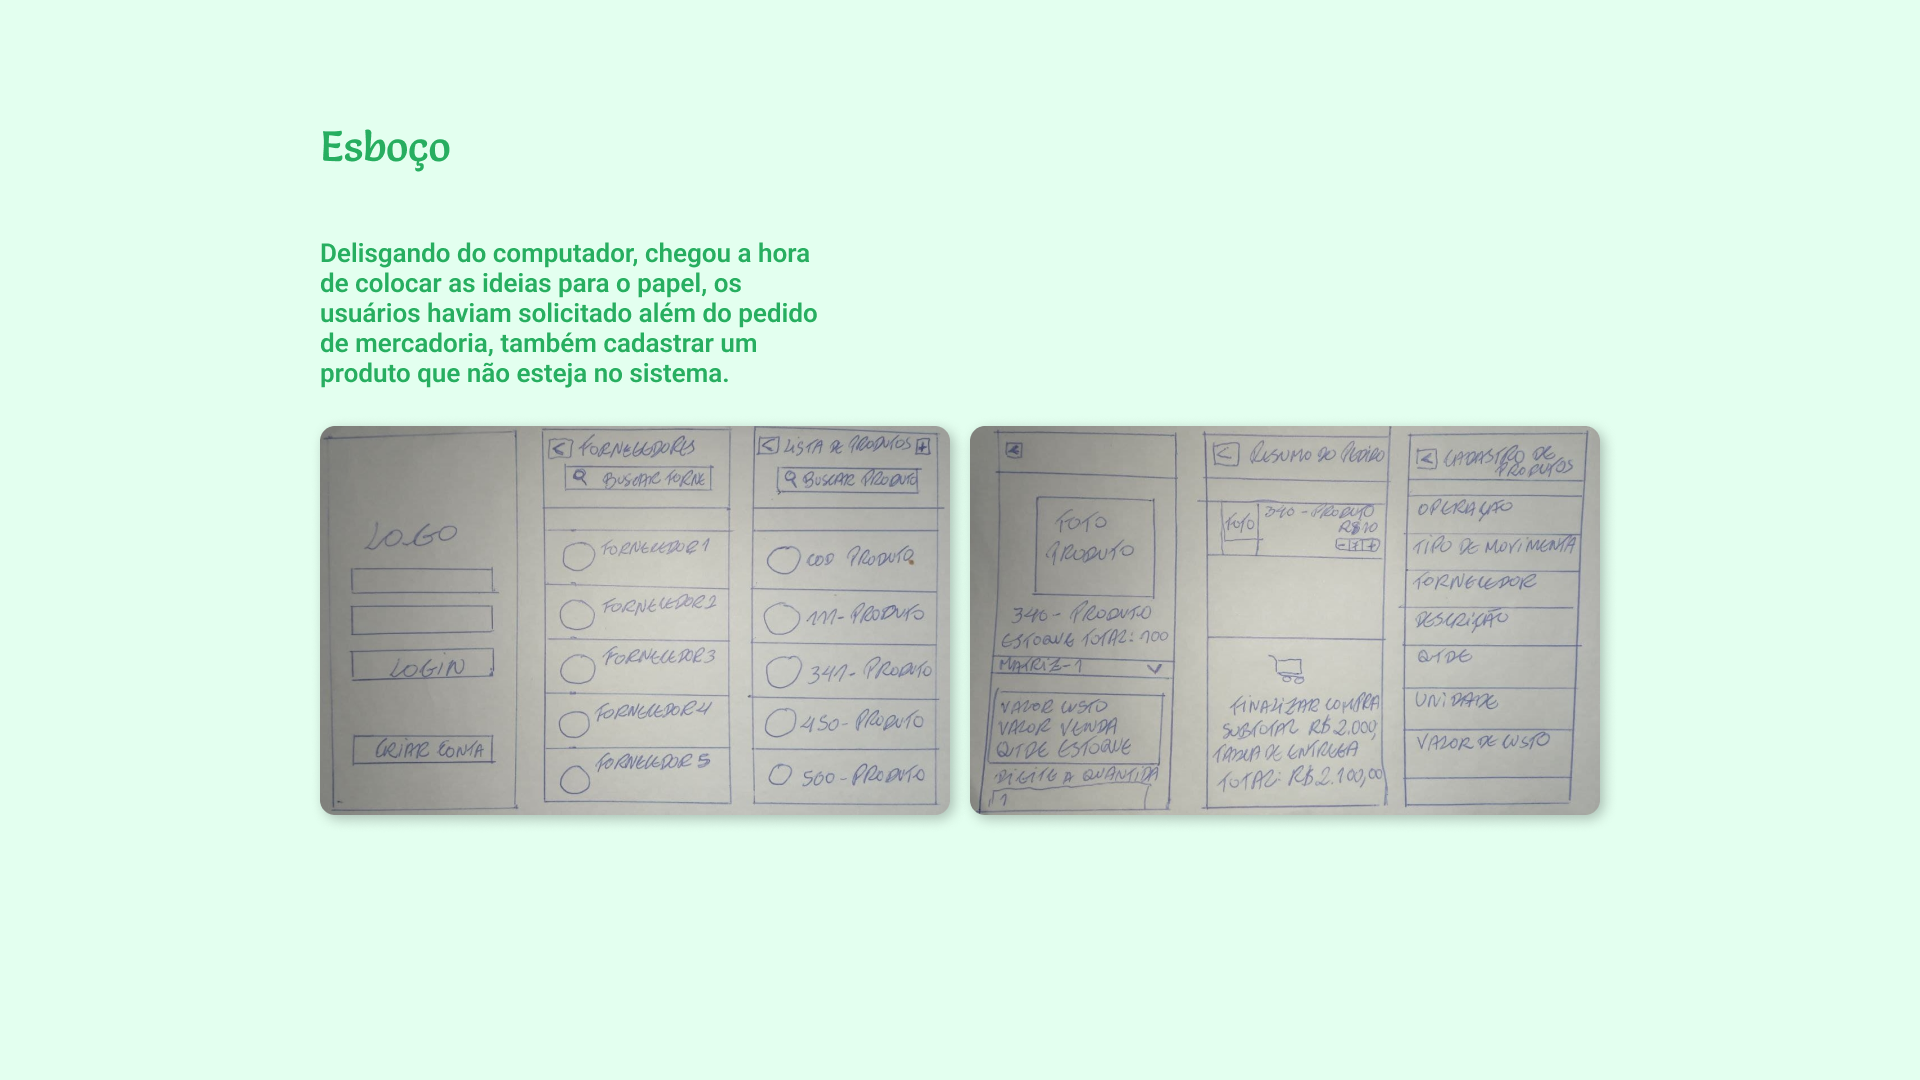 Esboço
Delisgando do computador, chegou a hora
de colocar as ideias para o papel, os
usuários haviam solicitado além do pedido
de mercadoria, também cadastrar um
produto que não esteja no sistema.
LOGO
LOGIN
CRIAR CONTA
< FORNECEDORES
BUSCAR FORNE
FORNECEDOR 1
FORNECEDOR 2
FORNECEDOR 3
FORNECEDOR 4
FORNECEDOR 5
< LISTA DE PRODUTOS +
BUSCAR PRODUTO
COD PRODUTO
111- PRODUTO
341- PRODUTO
450- PRODUTO
500- PRODUTO
<
FOTO
PRODUTO
340- PRODUTO
ESTOQUE TOTAL: 100
MATRIZ-1
VALOR CUSTO
VALOR VENDA
QTDE ESTOQUE
DIGITE A QUANTIDA
1
< RESUMO DO PEDIDO
FOTO
340- PRODUTO
R$20
- 1 +
FINALIZAR COMPRA
SUBTOTAL R$2.000,
DE ENTREGA
TOTAL: R$2.100,00
< CADASTRO DE
PRODUTOS
OPERAÇÃO
TIPO DE MOVIMENTA
FORNECEDOR
DESCRIÇÃO
QTDE
UNIDADE
VALOR DE CUSTO